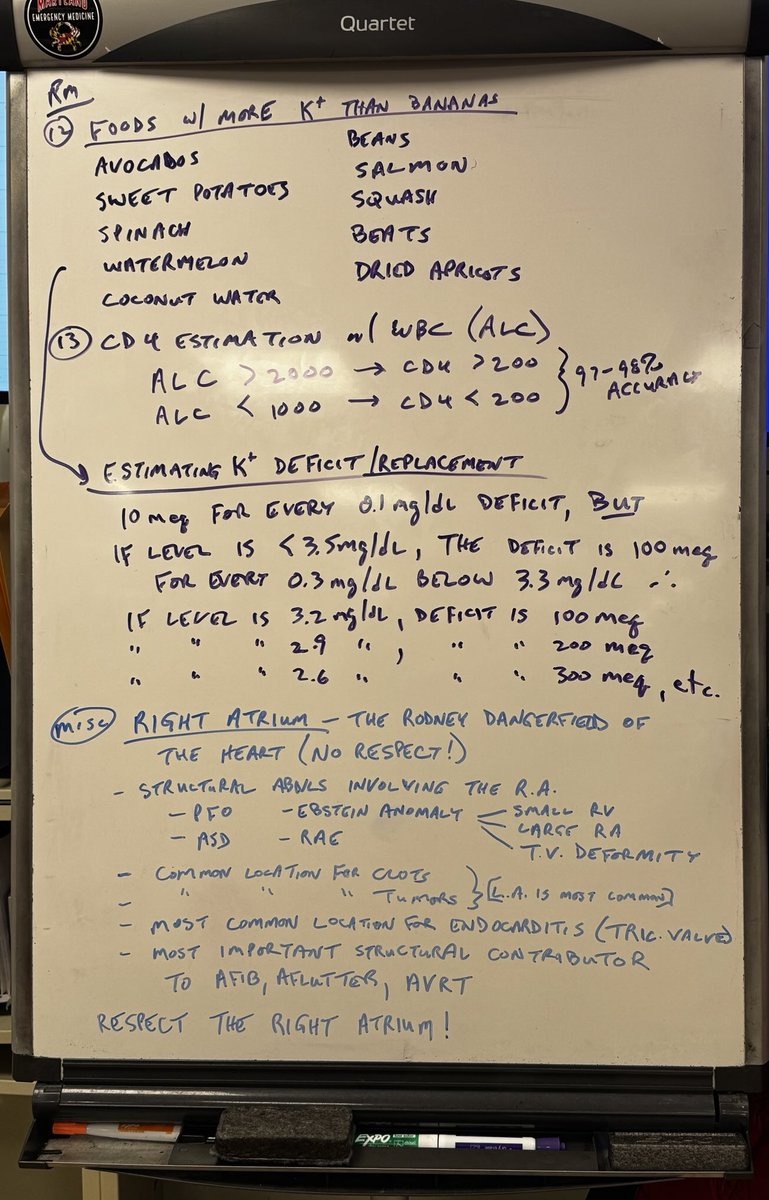 MARYLAND
EMERGENCY MEDICINE
Quartet
Rm
12 FOODS W/ MORE K+ THAN BANANAS
AVOCADOS
SWEET POTATOES
SPINACH
WATERMELON
COCONUT WATER
BEANS
SALMON
SQUASH
BEATS
DRIED APRICOTS
13 CD4 ESTIMATION w/ WBC (ALC)
ALC > 2000 → CD4 > 200
ALC < 1000 → CD4 < 200
97-98% ACCURACY
ESTIMATING K+ DEFICIT/REPLACEMENT
10 meq FOR EVERY 0.1 mg/dL DEFICIT, BUT
IF LEVEL IS < 3.5mg/dL, THE DEFICIT IS 100 meq
FOR EVERY 0.3 mg/dL BELOW 3.3 mg/dL ∴
IF LEVEL IS 3.2 mg/dL, DEFICIT IS 100 meq
" " " 2.9 ", " " 200 meq
" " " 2.6 " " " 300 meq, etc.
misc RIGHT ATRIUM – THE RODNEY DANGERFIELD OF
THE HEART (NO RESPECT!)
- STRUCTURAL ABNLS INVOLVING THE R.A.
- PFO - EBSTEIN ANOMALY SMALL RV
LARGE RA
- ASD - RAE
T.V. DEFORMITY
- COMMON LOCATION FOR CLOTS
- " " " TUMORS [L.A. IS MOST COMMON]
- MOST COMMON LOCATION FOR ENDOCARDITIS (TRIC. VALVE)
- MOST IMPORTANT STRUCTURAL CONTRIBUTOR
TO AFIB, AFLUTTER, AVRT
RESPECT THE RIGHT ATRIUM!
EXPO